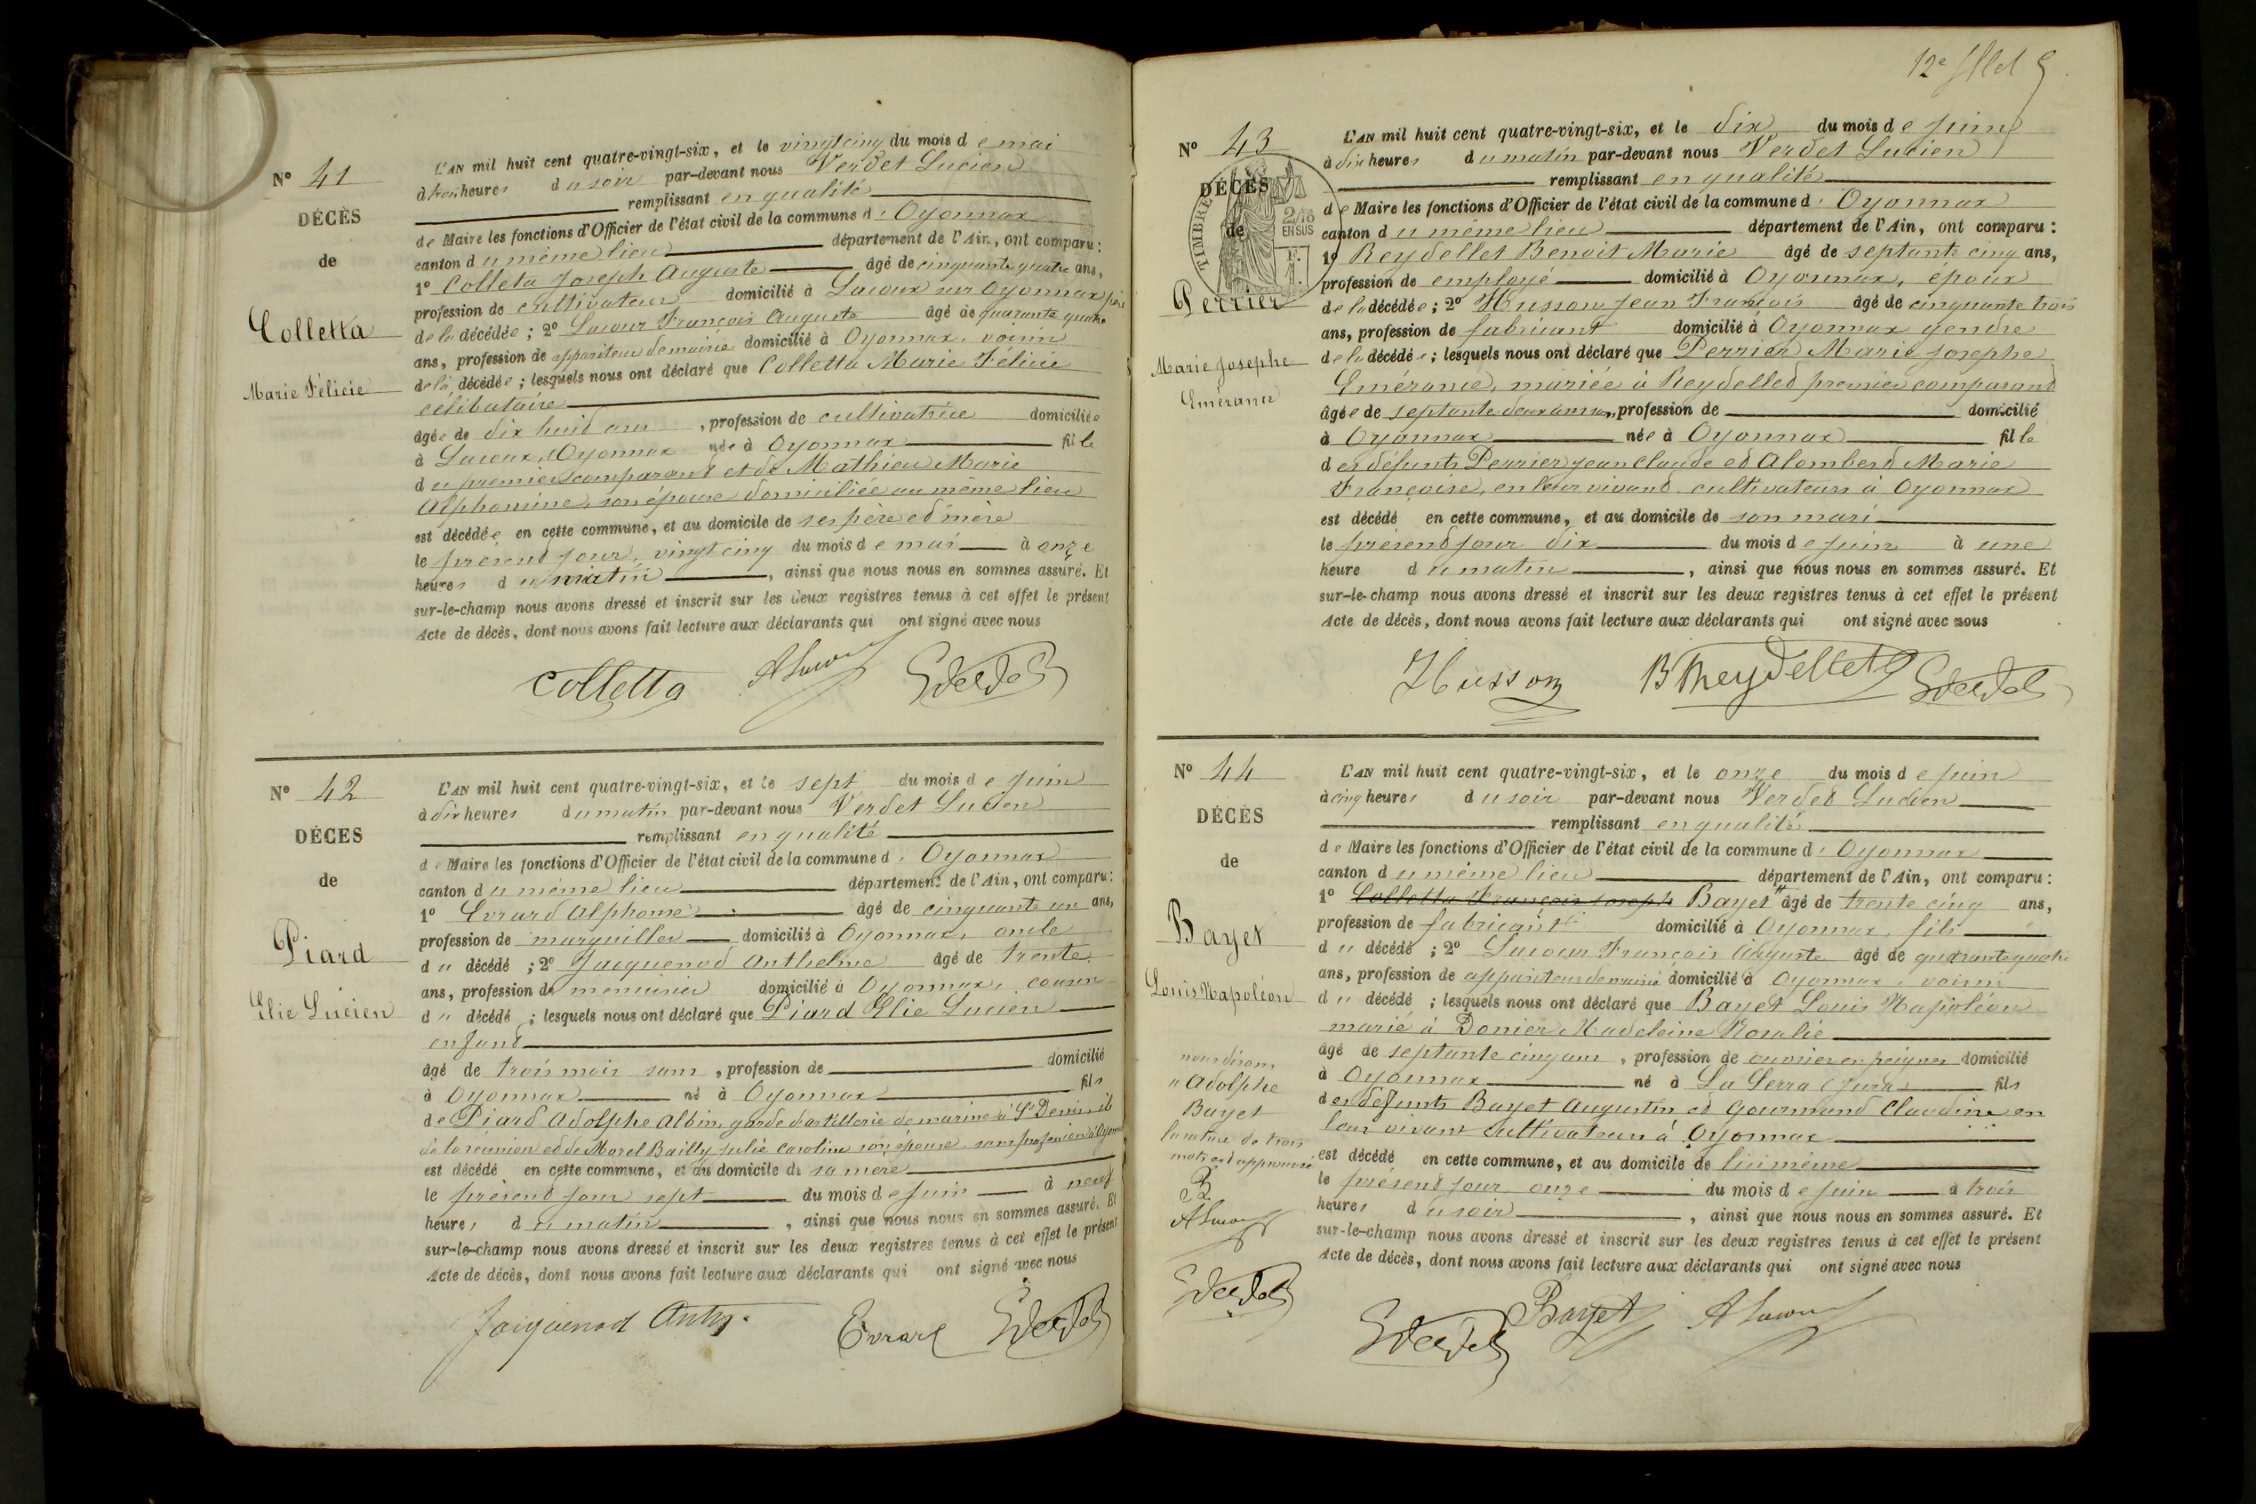 Nº 41
DÉCÈS
de
Colletta
Marie Félicie
L'AN mil huit cent quatre-vingt-six, et le vingt cinq du mois de mai
à trois heures du soir par-devant nous Verdet Lucien
remplissant en qualité
de Maire les fonctions d'Officier de l'état civil de la commune d'Oyonnax
canton du même lieu département de l'Ain, ont comparu:
1º Colleta Joseph Auguste âgé de cinquante quatre ans,
profession de cultivateur domicilié à Lacoux sur Oyonnax père
de la décédée; 2º Lacour François Auguste âgé de quarante quatre
ans, profession de appariteur de mairie domicilié à Oyonnax, voisin
de la décédée; lesquels nous ont déclaré que Colletta Marie Félicie
célibataire
âgée de dix huit ans, profession de cultivatrice domiciliée
à Lacoux, Oyonnax née à Oyonnax fille
du premier comparant et de Mathieu Marie
Alphonsine, son épouse domiciliée au même lieu
est décédée en cette commune, et au domicile de ses père et mère
le présent jour, vingt cinq du mois de mai à onze
heures du matin, ainsi que nous nous en sommes assuré. Et
sur-le-champ nous avons dressé et inscrit sur les deux registres tenus à cet effet le présent
Acte de décès, dont nous avons fait lecture aux déclarants qui ont signé avec nous
Colletta ALacour Verdet
Nº 42
DÉCES
de
Piard
Elie Lucien
L'AN mil huit cent quatre-vingt-six, et le sept du mois de juin
à dix heures du matin par-devant nous Verdet Lucien
remplissant en qualité
de Maire les fonctions d'Officier de l'état civil de la commune d'Oyonnax
canton du même lieu département de l'Ain, ont comparu:
1º Evrard Alphonse âgé de cinquante un ans,
profession de marguiller domicilié à Oyonnax, oncle
du décédé; 2º Jacquenod Anthelme âgé de trente
ans, profession de menuisier domicilié à Oyonnax, cousin
du décédé; lesquels nous ont déclaré que Piard Elie Lucien
enfant
âgé de trois mois sans, profession de domicilié
à Oyonnax né à Oyonnax fils
de Piard Adolphe Albin, garde d'artillerie de marine à St Denis, ile
de la réunion et de Morel Bailly Julie Caroline son épouse, sans profession à Oyonnax
est décédé en cette commune, et au domicile de sa mère
le présent jour sept du mois de juin à neuf
heures du matin, ainsi que nous nous en sommes assuré. Et
sur-le-champ nous avons dressé et inscrit sur les deux registres tenus à cet effet le présent
Acte de décès, dont nous avons fait lecture aux déclarants qui ont signé avec nous
Jacquenod Anth. Evrard Verdet
12e
Nº 43
DÉCÈS
de
TIMBRE
2/10 EN SUS
Perrier
Marie Josephe
Emérance
L'AN mil huit cent quatre-vingt-six, et le dix du mois de juin
à dix heures du matin par-devant nous Verdet Lucien
remplissant en qualité
de Maire les fonctions d'Officier de l'état civil de la commune d'Oyonnax
canton du même lieu département de l'Ain, ont comparu:
1º Reydellet Benoit Marie âgé de septante cinq ans,
profession de employé domicilié à Oyonnax, époux
de la décédée; 2º Husson Jean François âgé de cinquante trois
ans, profession de fabricant domicilié à Oyonnax gendre
de la décédée; lesquels nous ont déclaré que Perrier Marie Josephe
Emérance, mariée à Reydellet premier comparant
âgée de septante deux ans, profession de domicilié
à Oyonnax née à Oyonnax fille
des défunts Perrier Jean Claude et Alombert Marie
Françoise, en leur vivant cultivateurs à Oyonnax
est décédé en cette commune, et au domicile de son mari
le présent jour dix du mois de juin à une
heure du matin, ainsi que nous nous en sommes assuré. Et
sur-le-champ nous avons dressé et inscrit sur les deux registres tenus à cet effet le présent
Acte de décès, dont nous avons fait lecture aux déclarants qui ont signé avec nous
Husson B Reydellet Verdet
Nº 44
DÉCÈS
de
Bayet
Louis Napoléon
nous disons
" Adolphe
Bayet
la rature de trois
mots est approuvée
B
ALacour
Verdet
L'AN mil huit cent quatre-vingt-six, et le onze du mois de juin
à cinq heures du soir par-devant nous Verdet Lucien
remplissant en qualité
de Maire les fonctions d'Officier de l'état civil de la commune d'Oyonnax
canton du même lieu département de l'Ain, ont comparu:
1º Colletta François Joseph Bayet " âgé de trente cinq ans,
profession de fabricant domicilié à Oyonnax, fils
du décédé; 2º Lacour François Auguste âgé de quarante quatre
ans, profession de appariteur de mairie domicilié à Oyonnax, voisin
du décédé; lesquels nous ont déclaré que Bayet Louis Napoléon
marié à Donier Madeleine Rosalie
âgé de septante cinq ans, profession de ouvrier en peignes domicilié
à Oyonnax né à La Serra (Jura) fils
des défunts Bayet Augustin et Gourmand Claudine en
leur vivant cultivateurs à Oyonnax
est décédé en cette commune, et au domicile de lui même
le présent jour onze du mois de juin à trois
heures du soir, ainsi que nous nous en sommes assuré. Et
sur-le-champ nous avons dressé et inscrit sur les deux registres tenus à cet effet le présent
Acte de décès, dont nous avons fait lecture aux déclarants qui ont signé avec nous
Verdet Bayet ALacour